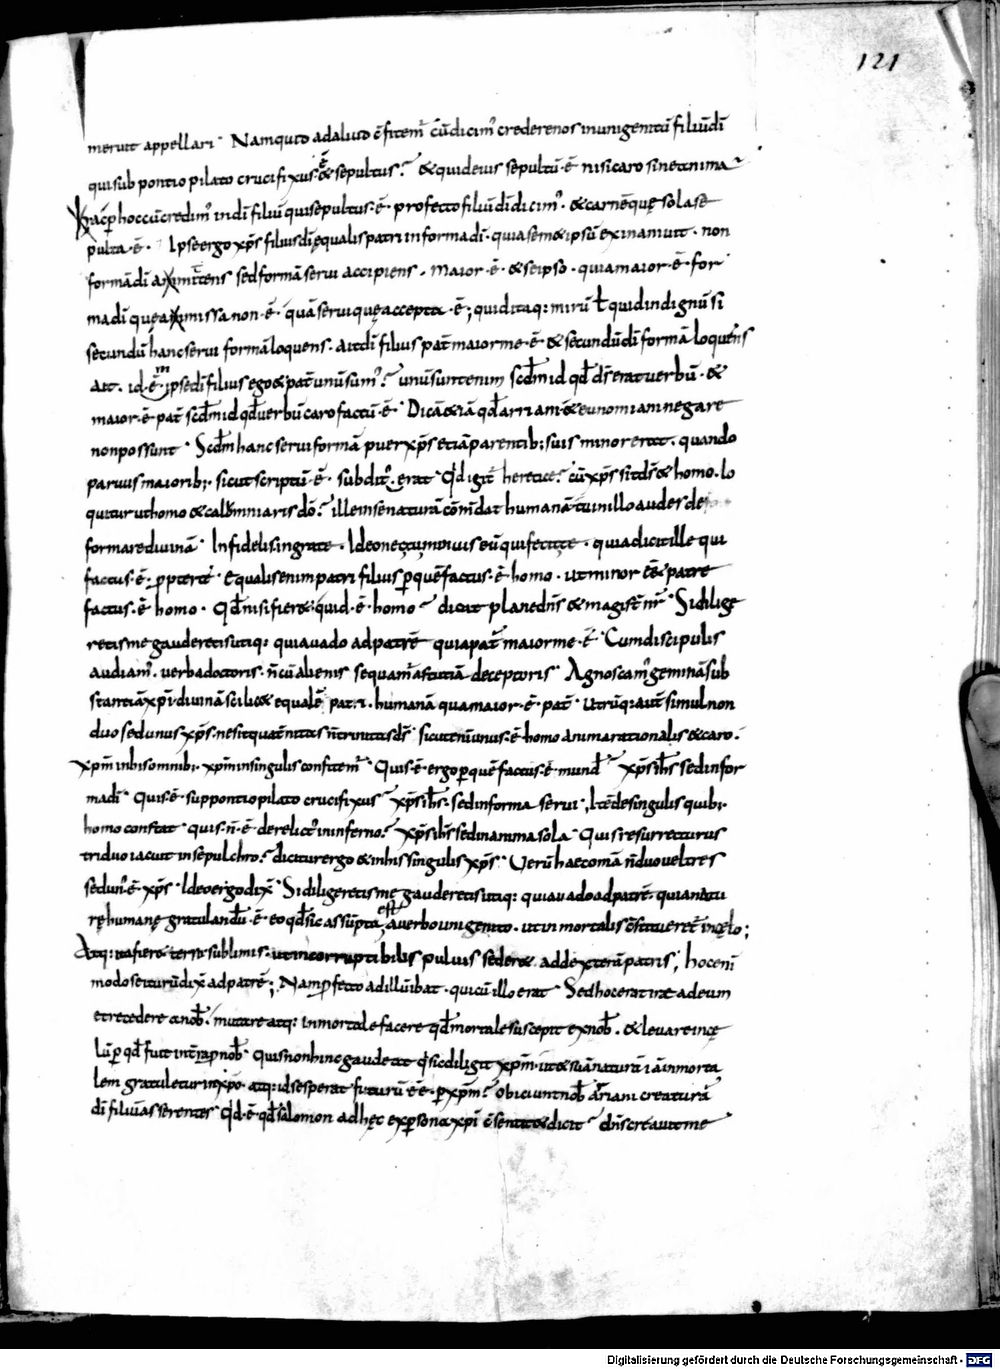 121
meruit appellari· Namquid adaliud c̄fitem̄ cū dicim' credere nos inunigenitū filiū dī
qui sub pontio pilato crucifixus ē & sepultus? & quid eius sepultū·ē· nisi caro sine anima
hac p̄ hoc cū credim' in dī filiū qui sepultus·ē· profecto filiū dī dicim'· & carnē quę sola se
pulta·ē· Ipse ergo xp̄s filius dī ęqualis patri in forma dī· quia sem&ipsū exinaniuit· non
formā dī amittens sed formā serui accipiens· maior·ē· & seipso· quia maior·ē· for
ma dī quę amissa non·ē· quā serui quę accepta·ē·; quid itaq: mirū ł quid indignū si
secundū hanc serui formā loquens· ait dī filius pat̄ maior me·ē· & secundū dī formā loquens
ait· id·ē· ipse dī filius ego & pat̄ unū sum'? unū sunt enim scd̄m id qd̄ d̄s erat uerbū· &
maior·ē· pat̄ scd̄m id qd̄ uerbū caro factū·ē· Dicā & iā qd̄ arriani & eunomiani negare
non possunt· Scd̄m hanc serui formā puer xp̄s etiā parentib; suis minor erat· quando
paruus maiorib;· sicut scriptū·ē· subdit' erat· Qd̄ igit̄ heretice? cū xp̄s sit d̄s & homo· lo
quitur ut homo & calūmniaris dō? ille in se naturā cōm̄dat humanā tu in illo audes de
formare diuinā· Infidelis ingrate· Ideo ne tu minuis eū qui fecit te· quia dicit ille qui
factus·ē· pp̄ter te· Equalis enim patri filius p̄ quē factus·ē· homo· ut minor ēēt patre
factus·ē· homo· Qd̄ nisi fier&· quid·ē· homo? dicat plane d̄ns & magist̄ n̄r· Si dilige
retis me gauderetis utiq: quia uado ad patrē quia pat̄ maior me·ē· Cum discipulis
audiam'· uerba doctoris· n̄ cū alienis sequam̄ astutiā deceptoris· Agnoscam' geminā sub
stantiā xp̄i diuinā scilic& equalē pat̄ri· humanā qua maior·ē· pat̄· Utrūq: aut̄ simul non
duo sed unus xp̄s· ne sit quat̄nitas n̄ trinitas d̄s· sicut enī unus·ē· homo anima rationalis & caro·
xp̄m in his omnib;· xp̄m in singulis confitem̄· Quis·ē· ergo p̄ quē factus·ē· mund'? xp̄s ih̄s sed in for
ma dī· Quis·ē· sub pontio pilato crucifixus? xp̄s ih̄s· sed in forma serui; Itē de singulis quib;·
homo constat· quis· n̄·ē· derelict' in inferno? xp̄s ih̄s sed in anima sola· Quis resurrecturus
triduo iacuit in sepulchro? dicitur ergo & in his singulis xp̄s· Uerū haec omā n̄ duo uel tres
sed un'·ē· xp̄s· Ideo ergo dix̄· Si diligeretis me gauderetis utiq: quia uado ad patrē· quia natu
rę humanę gratulandū·ē· eo qd̄ sic assūpta est a uerbo unigenito· ut inmortalis c̄stitueret̄ in cęlo;
Atq: ita fier& terra sublimis· ut incorruptibilis puluis seder& ad dexterā patris; hoc enī
modo se iturū dix̄ ad patrē; Nam p̄fecto ad illū ibat· qui cū illo erat· Sed hoc erat ire ad eum
et recedere a nob̄· mutare atq: inmortale facere qd̄ mortale suscepit ex nob̄· & leuare in cę
lū p̄ qd̄ fuit in t̄ra p̄ nob̄· Quis non hinc gaudeat qi sic diligit xp̄m· ut & suā naturā iā inmorta
lem gratuletur in xp̄o· atq: id se sperat futurū ēē· p̄ xp̄m? Obiciunt nob̄ arriani creaturā
dī filiū asserentes· Qd̄·ē· qd̄ salomon ad hęc ex p̄sona xp̄i c̄sentit & dicit? d̄ns creauit me
Digitalisierung gefördert durch die Deutsche Forschungsgemeinschaft - DFG